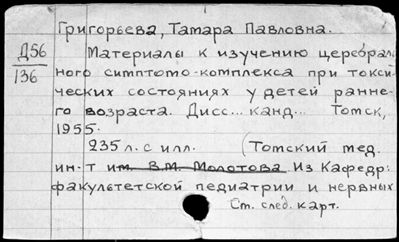 Григорьева, Тамара Павловна.
Д56
136
Материалы к изучению церебраль
ного симптомо-комплекса при токси-
ческих состояниях у детей ранне-
го возраста. Дисс... канд... Томск,
1955.
235 л. с илл. (Томский мед.
ин-т им. В.М. Молотова Из Кафедр:
факультетской педиатрии и нервных
См. след. карт.